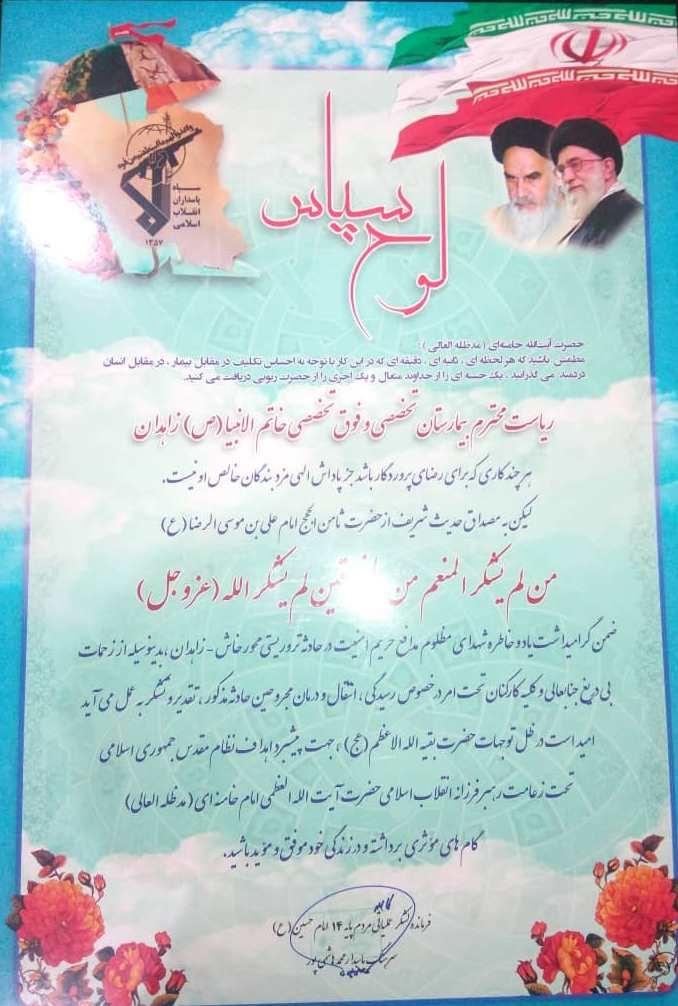 سپاه
پاسداران
انقلاب
اسلامی
۱۳۵۷
لوح سپاس
حضرت آیت‌الله خامنه‌ای (مدظله العالی):
مطمئن باشید که هر لحظه ای، ثانیه ای، دقیقه ای که در این کار با توجه به احساس تکلیف در مقابل بیمار، در مقابل انسان
دردمند می گذرانید، یک حسنه ای را از خداوند متعال و یک اجری را از حضرت ربوبی دریافت می کنید.
ریاست محترم بیمارستان تخصصی و فوق تخصصی خاتم الانبیا(ص) زاهدان
هر چند کاری که برای رضای پروردگار باشد جز پاداش الهی مزد بندگان خالص او نیست.
لیکن به مصداق حدیث شریف از حضرت ثامن الحجج امام علی بن موسی الرضا (ع)
من لم یشکر المنعم من لم یشکر الله (عزوجل)
ضمن گرامیداشت یاد و خاطره شهدای مظلوم مدافع حریم امنیت در حادثه تروریستی محور خاش - زاهدان، بدینوسیله از زحمات
بی دریغ جنابعالی و کلیه کارکنان تحت امر در خصوص رسیدگی، انتقال و درمان مجروحین حادثه مذکور، تقدیر و تشکر به عمل می آید
امید است در ظل توجهات حضرت بقیه الله الاعظم (عج)، جهت پیشبرد اهداف نظام مقدس جمهوری اسلامی
تحت زعامت رهبر فرزانه انقلاب اسلامی حضرت آیت الله العظمی امام خامنه ای (مدظله العالی)
گام های مؤثری برداشته و در زندگی خود موفق و مؤید باشید.
فرمانده لشکر عملیاتی مردم پایه ۱۴ امام حسین (ع)
سرهنگ پاسدار